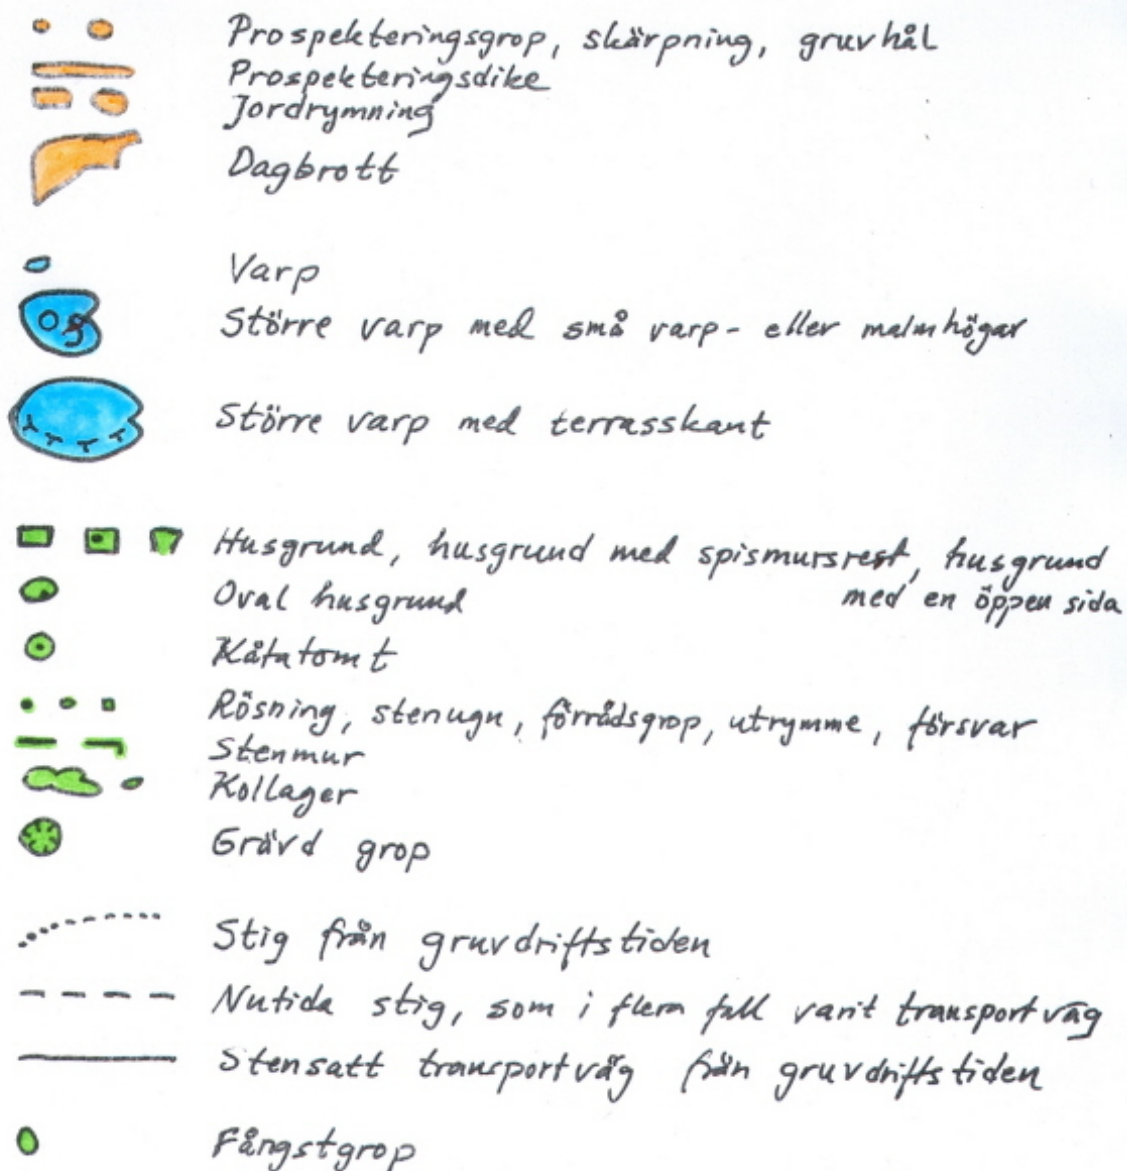 Prospekteringsgrop, skärpning, gruvhål
Prospekteringsdike
Jordrymning
Dagbrott
Varp
Större varp med små varp- eller malmhögar
Större varp med terrasskant
Husgrund, husgrund med spismursrest, husgrund
med en öppen sida
Oval husgrund
Kåtatomt
Rösning, stenugn, förrådsgrop, utrymme, försvar
Stenmur
Kollager
Grävd grop
Stig från gruvdriftstiden
Nutida stig, som i flera fall varit transportväg
Stensatt transportväg från gruvdriftstiden
Fångstgrop